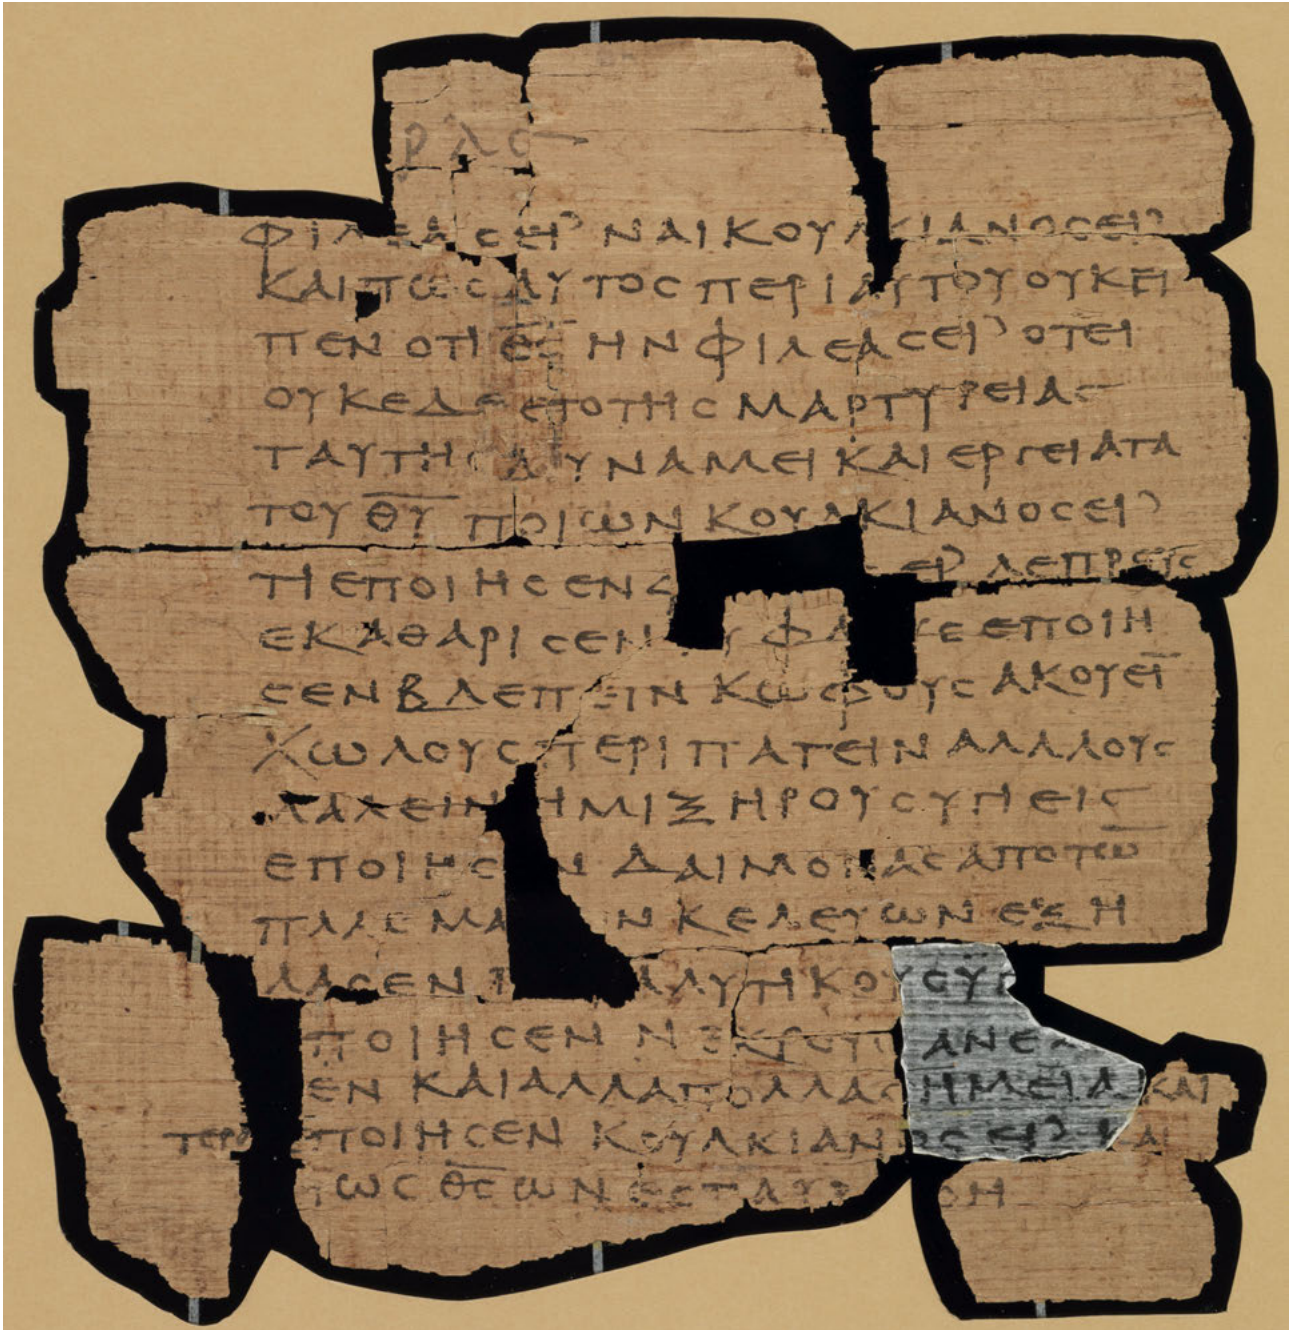 ρλϛ
φιλεας ει⁾ ναι κουλκιανος ει⁾
και πως αυτος περι αυτου ουκ ει
πεν οτι θ̅ς̅ ην φιλεας ει⁾ οτει
ουκ εδεετο της μαρτυρειας
ταυτης δυναμει και εργει α τα
του θ̅υ̅ ποιων κουλκιανος ει⁾
τι εποιησεν ει⁾ λεπρεις
εκαθαρισεν εποιη
σεν βλεπειν κωφους ακουει̅
χωλους περιπατειν αλλλους
λαλειν ημιξηρους υγιεις
εποιησεν δαιμονας απο τω̅
πλασματων κελευων εξη
λασεν
ποιησεν νεκρους
εν και αλλα πολλα σημεια και
τερα ποιησεν κουλκιανος ει⁾ και
πως θ̅ς̅ ων εσταυρωθη